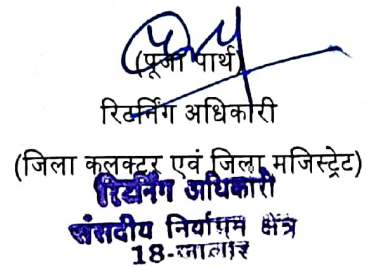 (पूजा पार्थ)
रिटर्निंग अधिकारी
(जिला कलक्टर एवं जिला मजिस्ट्रेट)
रिटर्निंग अधिकारी
संसदीय निर्वाचन क्षेत्र
18-जालोर